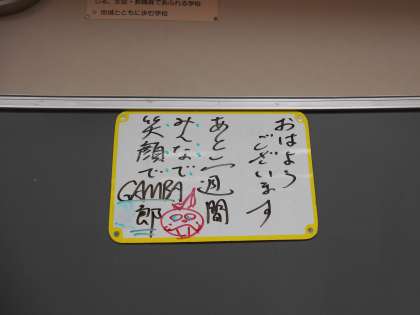 る、生徒・教職員であふれる学校
○地域とともに歩む学校
おはよう
ございます
あと一週間
みんなで
笑顔で
GAMBA
郎